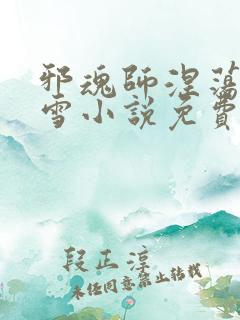 邪魂師涅蕩
雪小說免費
段正淳
未经同意禁止转载